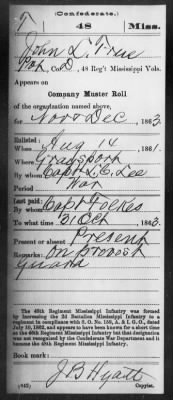 (Confederate.)
T 48 Miss.
John L. True
Pvt, Co. D, 48 Reg't Mississippi Vols.
Appears on
Company Muster Roll
of the organization named above,
for Nov & Dec, 1863.
Enlisted:
When Aug 14, 1861.
Where Graysport
By whom Capt L. C. Lee
Period War
Last paid:
By whom Capt Folkes
To what time 31 Oct, 1863.
Present or absent Present
Remarks: On provost
guard
The 48th Regiment Mississippi Infantry was formed
by increasing the 2d Battalion Mississippi Infantry to a
regiment in compliance with S. O. No. 159, A. & I. G. O., dated
July 10, 1862, and appears to have been known for a short time
as the 46th Regiment Mississippi Infantry but that designation
was not recognized by the Confederate War Department and it
became the 48th Regiment Mississippi Infantry.
Book mark:
J B Hyatt
(642) Copyist.